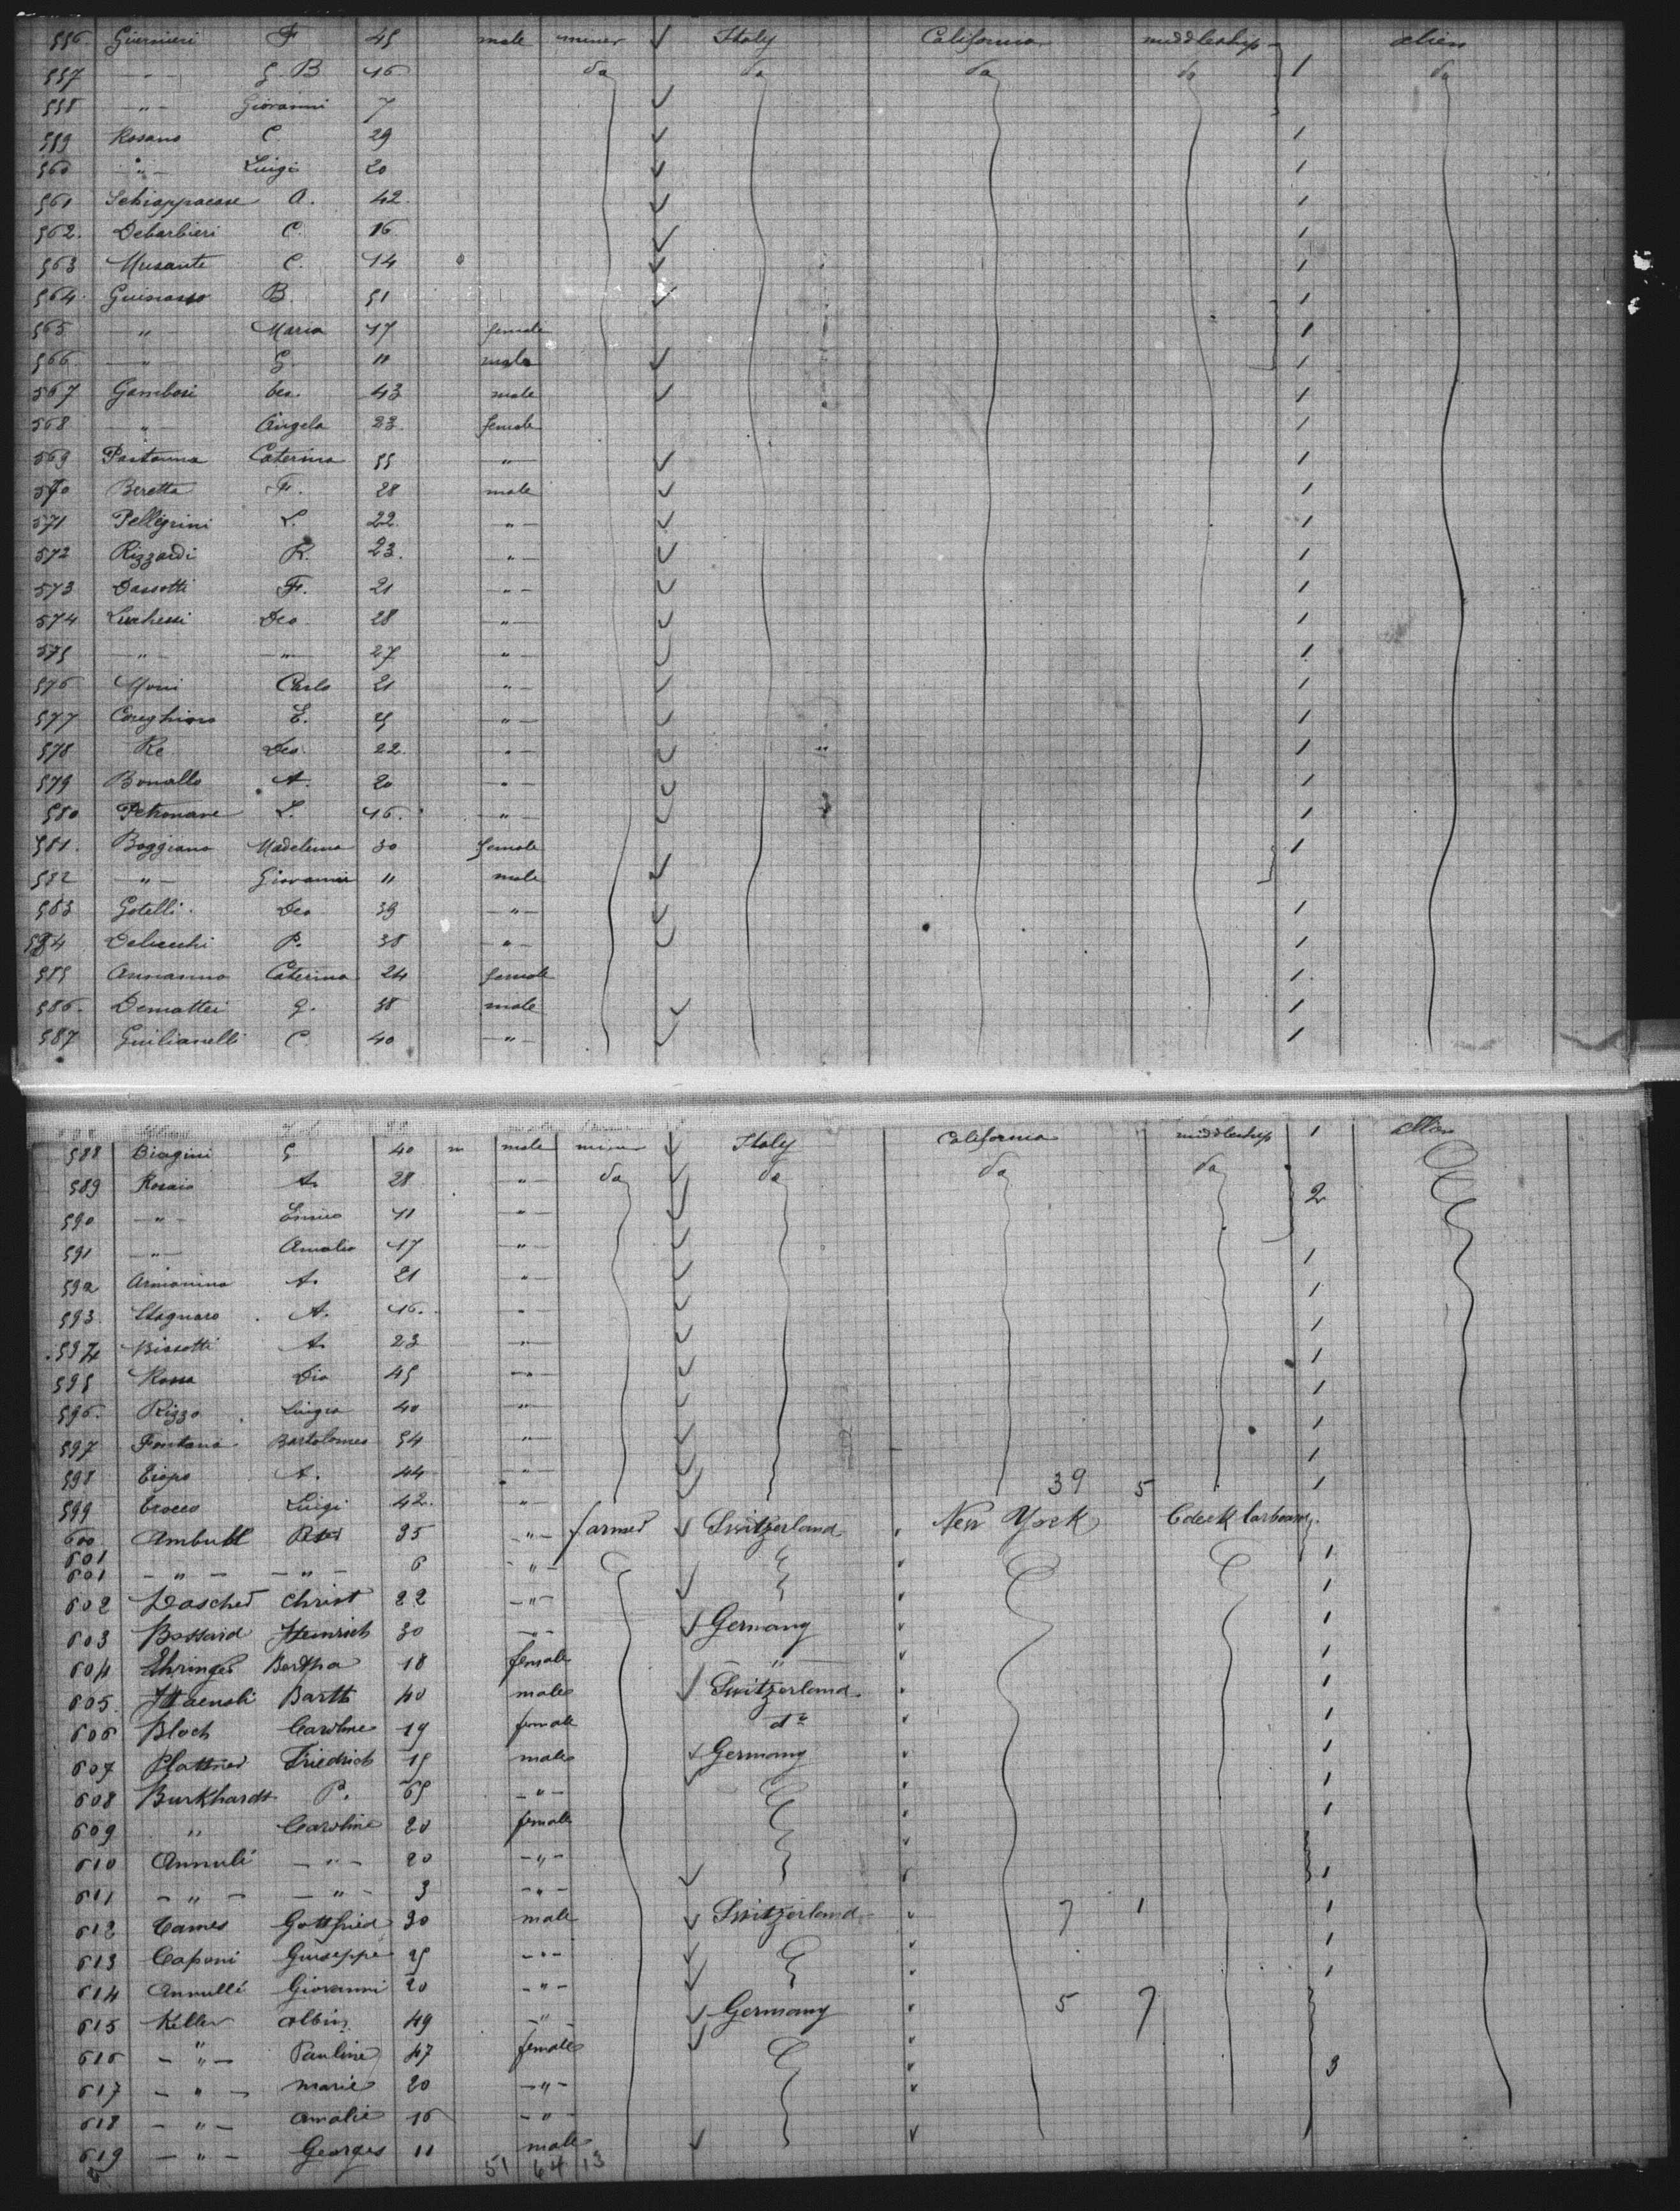 556. Guernieri F 45 male miner ✓ Italy California middleship alien
557 — " — G. B 46 do do do do 1 do
558 — " — Giovanni 7 ✓
559 Rosano C. 29 ✓ 1
560 — " — Luigi 20 ✓ 1
561 Schiappacase A. 42. ✓ 1
562. Debarbieri C. 16 ✓ 1
563 Musante C. 14 ✓ 1
564. B. 51 ✓ 1
565 — " — Maria 47 female 1
566 — " — G. 11 male ✓ 1
567 Gambosi 43 male ✓ 1
568 — " — Angela 23. female 1
569 Caterina 55 — " — ✓ 1
570 Beretta F. 28 male ✓ 1
571 Pellegrini L. 22 — " — ✓ 1
572 Rizzardi R. 23. — " — ✓ 1
573 Dassotti F. 21 — " — ✓ 1
574 Luchessi Deo 28 — " — ✓ 1
575 — " — — " — 27 — " — ✓ 1
576 Moni Carlo 21 — " — ✓ 1
577 E. 25 — " — ✓ 1
578 Re Deo 22. — " — ✓ " 1
579 Bonallo A. 20 — " — ✓ 1
580 L. 46. — " — ✓ 1
581. Boggiano Madelena 30 female 1
582 — " — Giovanni 11 male ✓
583 Gotelli Deo 39 — " — ✓ 1
584 Delucchi P. 38 — " — ✓ 1
585 Caterina 24 female 1
586. Demattei G. 38 male ✓ 1
587 Guilianelli C. 40 — " — ✓ 1
588 Biagini G 40 m male miner ✓ Italy California middleship 1 alien
589 Rosaio A. 28 — " — do ✓ do do do 2
590 — " — 11 — " — ✓
591 — " — Amalio 17 — " — ✓ 1
592 Armanino A. 21 — " — ✓ 1
593 Stagnaro A. 46. — " — ✓ 1
594 Bissotti A. 23 — " — ✓ 1
595 Rossa Dio 45 — " — ✓ 1
596. Rizzo 40 — " — ✓ 1
597 Fontana Bartolomeo 54 — " — ✓ 1
598 A. 44 — " — ✓ 1
599 Crocco Luigi 42. — " — ✓ 39 5 1
600 Ambuhl Peter 35 — " — farmer ✓ Switzerland New York
601
601 — " — — " — 6 — " — 1
602 Dascher Christ 22 — " — ✓ 1
603 Bossard Heinrich 30 — " — ✓ Germany 1
604 Ehringer Bertha 18 female — " — 1
605. Haensli Barth 40 male ✓ Switzerland 1
606 Bloch Caroline 19 female do 1
607 Plattner Friedrich 15 male ✓ Germany 1
608 Burkhardt P. 65 — " — 1
609 " Caroline 20 female 1
610 Annuli — " — 20 — " —
611 — " — — " — 3 — " — ✓ 1
612 Cames Gottfried 30 male ✓ Switzerland 7 1 1
613 Caponi Guiseppe 25 — " — ✓ 1
614 Annulli Giovanni 20 — " — ✓ 1
615 Keller Albin 49 — " — ✓ Germany 5 7
616 — " — Pauline 47 female ✓
617 — " — Marie 20 — " — 3
618 — " — Amalie 16 — " —
619 — " — Georges 11 male ✓
51 64 13